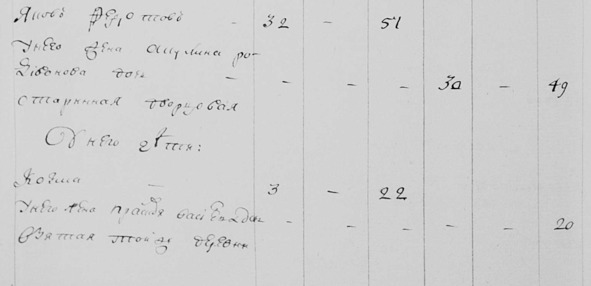 Яковъ Федотовъ - 32 - 51
Унего жена Акулина ро-
дионова дочь - - - - 30 - 49
старинная дворцовая
Унего дети:
Козма - 3 - 22
Унего жена васильева дочь - - - - - 20
взятая тойже деревни